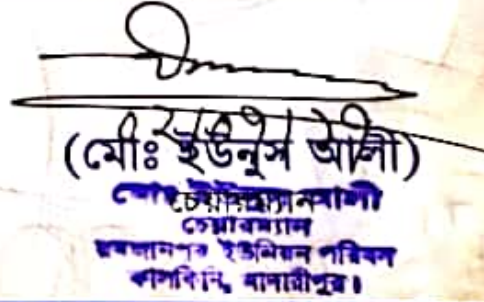 (মোঃ ইউনুস আলী)
চেয়ারম্যান
মোঃ ইউনুস আলী
চেয়ারম্যান
রমজানপুর ইউনিয়ন পরিষদ
কালকিনি, মাদারীপুর।